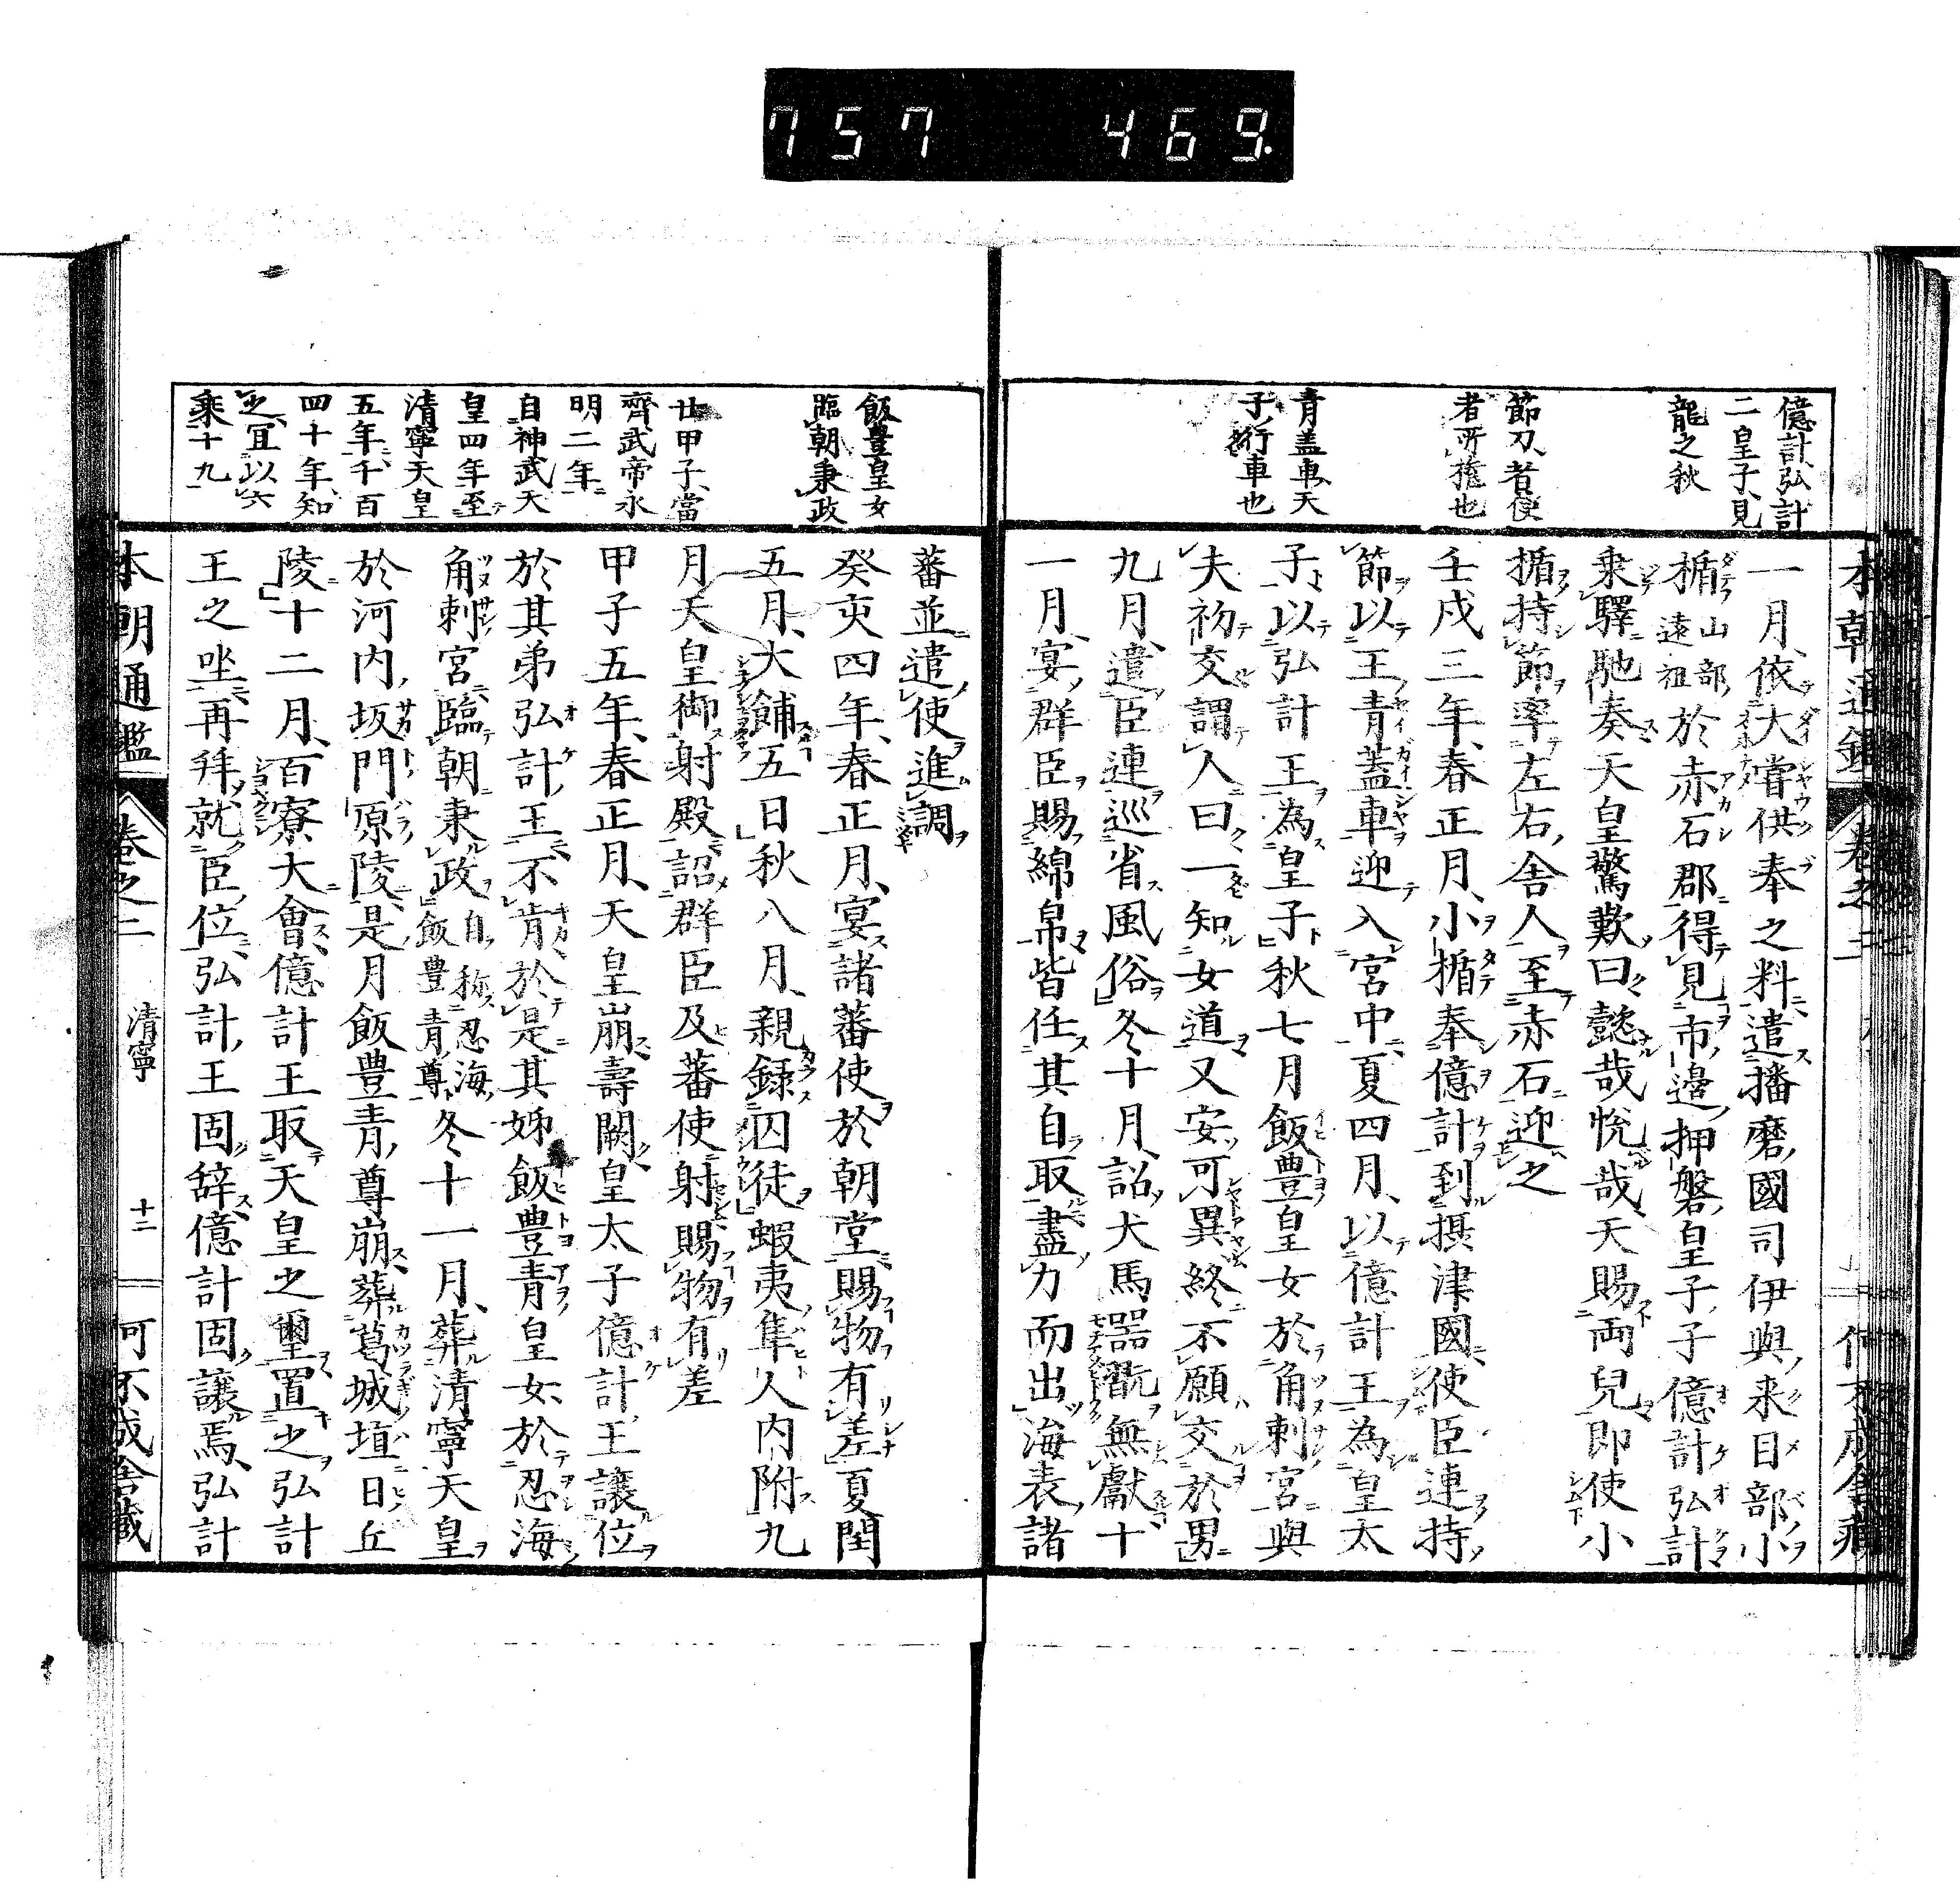 757 469.
億計弘計
二皇子見
龍之秋
節刀者使
者所擔也
青蓋車天
子行車也
一月依大嘗供奉之料遣播磨國司伊與來目部小
楯山部遠祖於赤石郡得見市邊押磐皇子子億計弘計
乗驛馳奏天皇驚歎曰懿哉悦哉天賜両兒即使小
楯持節率左右舎人至赤石迎之
壬戌三年春正月小楯奉億計到摂津國使臣連持
節以王青蓋車迎入宮中夏四月以億計王為皇太
子以弘計王為皇子秋七月飯豊皇女於角刺宮與
夫初交謂人曰一知女道又安可異終不願交於男
九月遣臣連巡省風俗冬十月詔犬馬器翫無獻十
一月宴群臣賜綿帛皆任其自取盡力而出海表諸
飯豊皇女
臨朝秉政
廿甲子當
齊武帝永
明二年
自神武天
皇四年至
清寧天皇
五年千百
四十年知
之冝以六
乗十九
蕃並遣使進調
癸亥四年春正月宴諸蕃使於朝堂賜物有差夏閏
五月大餔五日秋八月親録囚徒蝦夷隼人内附九
月天皇御射殿詔群臣及蕃使射賜物有差
甲子五年春正月天皇崩壽闕皇太子億計王譲位
於其弟弘計王不肯於是其姊飯豊青皇女於忍海
角刺宮臨朝秉政自称忍海飯豊青尊冬十一月葬清寧天皇
於河内坂門原陵是月飯豊青尊崩葬葛城埴口丘
陵十二月百寮大會億計王取天皇之璽置之弘計
王之坐再拜就臣位弘計王固辞億計固譲焉弘計
本朝通鑑 卷之二 清寧 十二 何不成舎藏